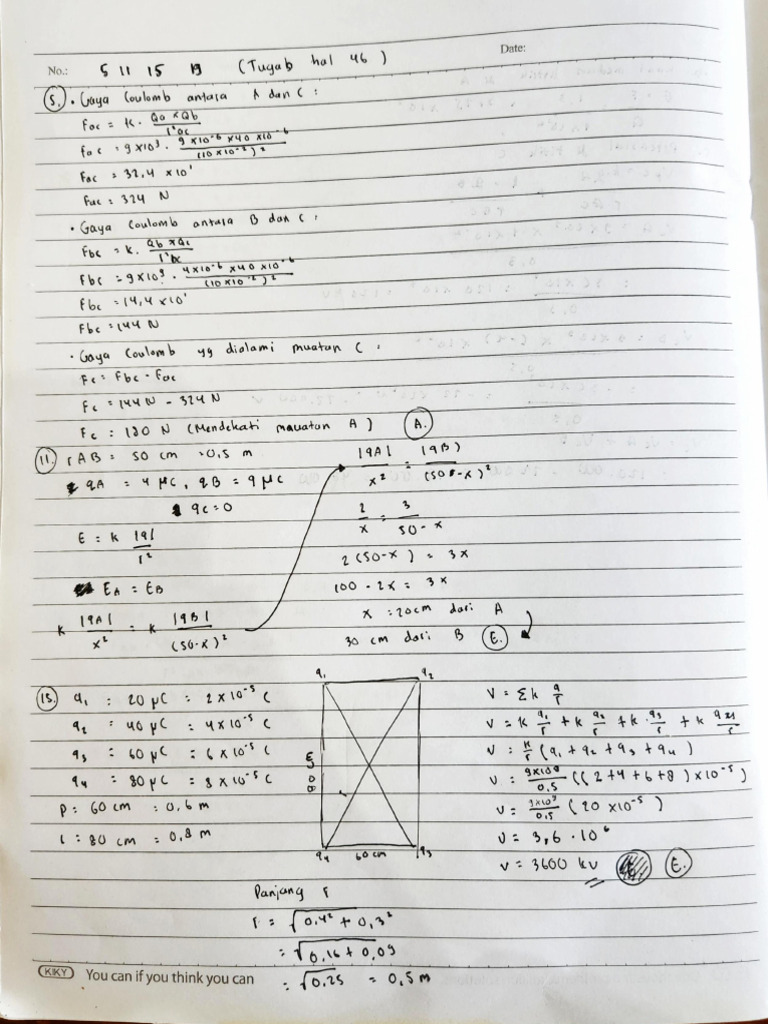 No.: 5 11 15 19 (Tugas hal 46) Date:
5. • Gaya Coulomb antara A dan C :
Fac = k. Qa x Qb / r²ac
Fac = 9x10⁹ . 9x10⁻⁶ x 40 x10⁻⁶ / (10x10⁻²)²
Fac = 32,4 x10¹
Fac = 324 N
• Gaya Coulomb antara B dan C :
Fbc = k. Qb x Qc / r²bc
Fbc = 9x10⁹ . 4x10⁻⁶ x 40 x10⁻⁶ / (10x10⁻²)²
Fbc = 14,4 x10¹
Fbc = 144 N
• Gaya Coulomb yg dialami muatan C :
Fc = Fbc - Fac
Fc = 144 N - 324 N
Fc = 180 N (Mendekati mauatan A) A.
11. rAB = 50 cm = 0,5 m
qA = 4 µC, qB = 9 µC
qC = 0
E = k |q| / r²
EA = EB
k |qA| / x² = k |qB| / (50-x)²
|qA| / x² = |qB| / (50-x)²
2 / x = 3 / 50-x
2 (50-x) = 3x
100 - 2x = 3x
x = 20cm dari A
30 cm dari B E.
15. q₁ = 20 µC = 2x10⁻⁵ C
q₂ = 40 µC = 4x10⁻⁵ C
q₃ = 60 µC = 6x10⁻⁵ C
q₄ = 80 µC = 8x10⁻⁵ C
P = 60 cm = 0,6 m
l = 80 cm = 0,8 m
q₁ q₂
80 cm
r
q₄ 60 cm q₃
Panjang r
r = √0,4² + 0,3²
= √0,16 + 0,09
= √0,25 = 0,5 m
V = Σk q/r
V = k q₁/r + k q₂/r + k q₃/r + k q₄/r
V = k/r (q₁ + q₂ + q₃ + q₄)
V = 9x10⁹/0,5 ((2+4+6+8) x10⁻⁵)
V = 9x10⁹/0,5 (20 x10⁻⁵)
V = 3,6 . 10⁶
V = 3600 kV E.
KIKY You can if you think you can